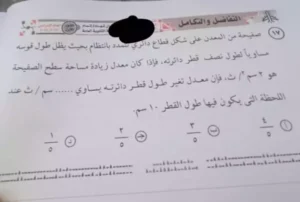 التفاضل والتكامل
١٧ صفيحة من المعدن على شكل قطاع دائري تتمدد بانتظام بحيث يظل طول قوسه
مساوياً لطول نصف قطر دائرته، فإذا كان معدل زيادة مساحة سطح الصفيحة
هو ٢ سم٢/ث، فإن معدل تغير طول قطر دائرته يساوي ...... سم/ث عند
اللحظة التى يكون فيها طول القطر ١٠ سم.
أ ٤/٥ ب ٣/٥ ج ٢/٥ د ١/٥